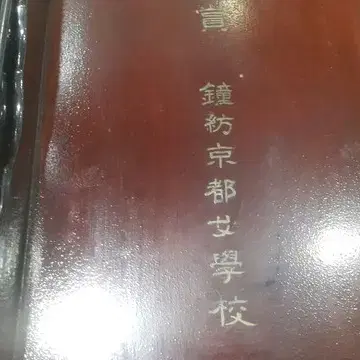 賞
鐘紡京都女學校